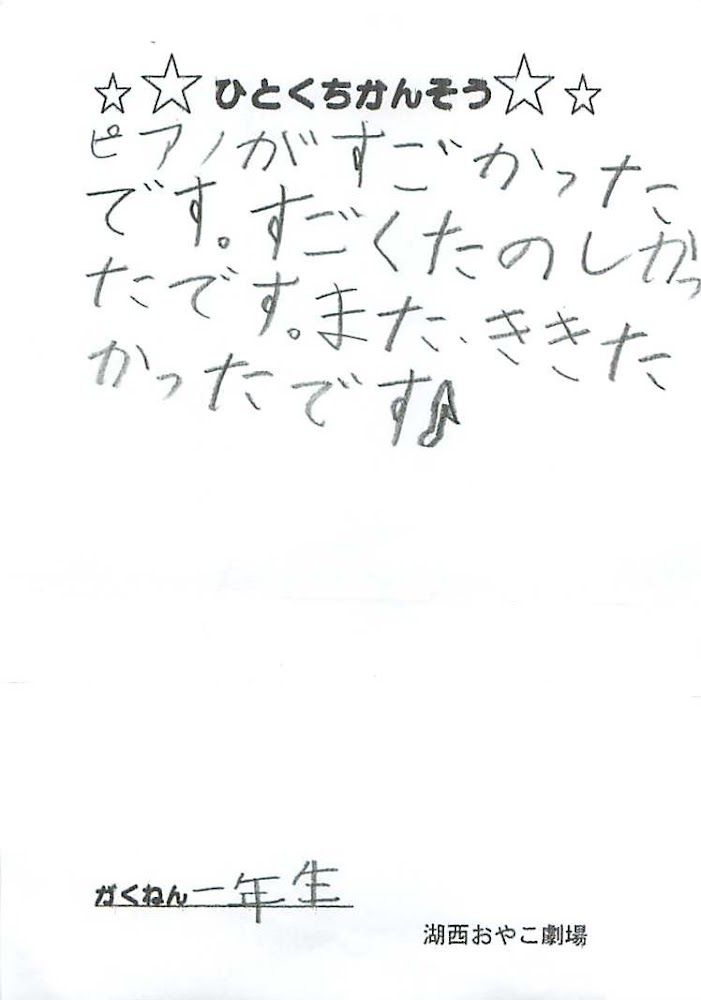 ☆☆ひとくちかんそう☆☆
ピアノがすごかった
です。すごくたのしかっ
たです。また、ききた
かったです♪
がくねん 一年生
湖西おやこ劇場